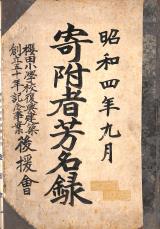 昭和四年九月
寄附者芳名録
櫻田小學校復興建築
創立五十年記念事業
後援會